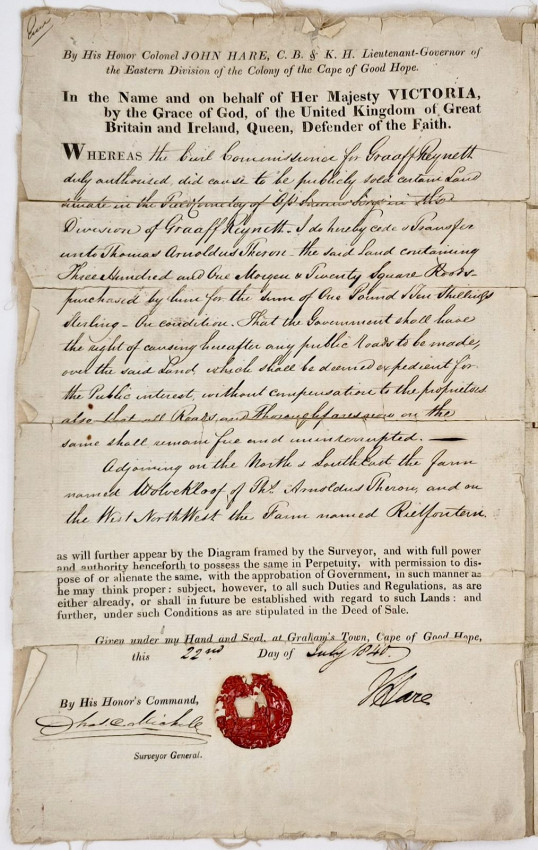 By His Honor Colonel JOHN HARE, C. B. & K. H. Lieutenant-Governor of
the Eastern Division of the Colony of the Cape of Good Hope.
In the Name and on behalf of Her Majesty VICTORIA,
by the Grace of God, of the United Kingdom of Great
Britain and Ireland, Queen, Defender of the Faith.
WHEREAS the Civil Commissioner for Graaff Reynett
duly authorised, did cause to be publicly sold certain Land
situate in the Field Cornetcy of in the
Division of Graaff Reynett. I do hereby cede & Transfer
unto Thomas Arnoldus Theron – the said Land containing
Three Hundred and One Morgen & Twenty Square Roods –
purchased by him for the sum of One Pound & Ten Shillings
Sterling – On condition. That the Government shall have
the right of causing hereafter any public Roads to be made,
over the said Land, which shall be deemed expedient for
the Public interest, without compensation to the proprietors
also that all Roads, and thoroughfares now on the
same shall remain free and uninterrupted. —
Adjoining on the North & South East the farm
named Wolvekloof of Ths. Arnoldus Theron, and on
the West North West the Farm named Rietfontein
as will further appear by the Diagram framed by the Surveyor, and with full power
and authority henceforth to possess the same in Perpetuity, with permission to dis-
pose of or alienate the same, with the approbation of Government, in such manner as
he may think proper: subject, however, to all such Duties and Regulations, as are
either already, or shall in future be established with regard to such Lands: and
further, under such Conditions as are stipulated in the Deed of Sale.
Given under my Hand and Seal, at Graham's Town, Cape of Good Hope,
this 22nd Day of July 1840.
J Hare
By His Honor's Command,
Surveyor General.